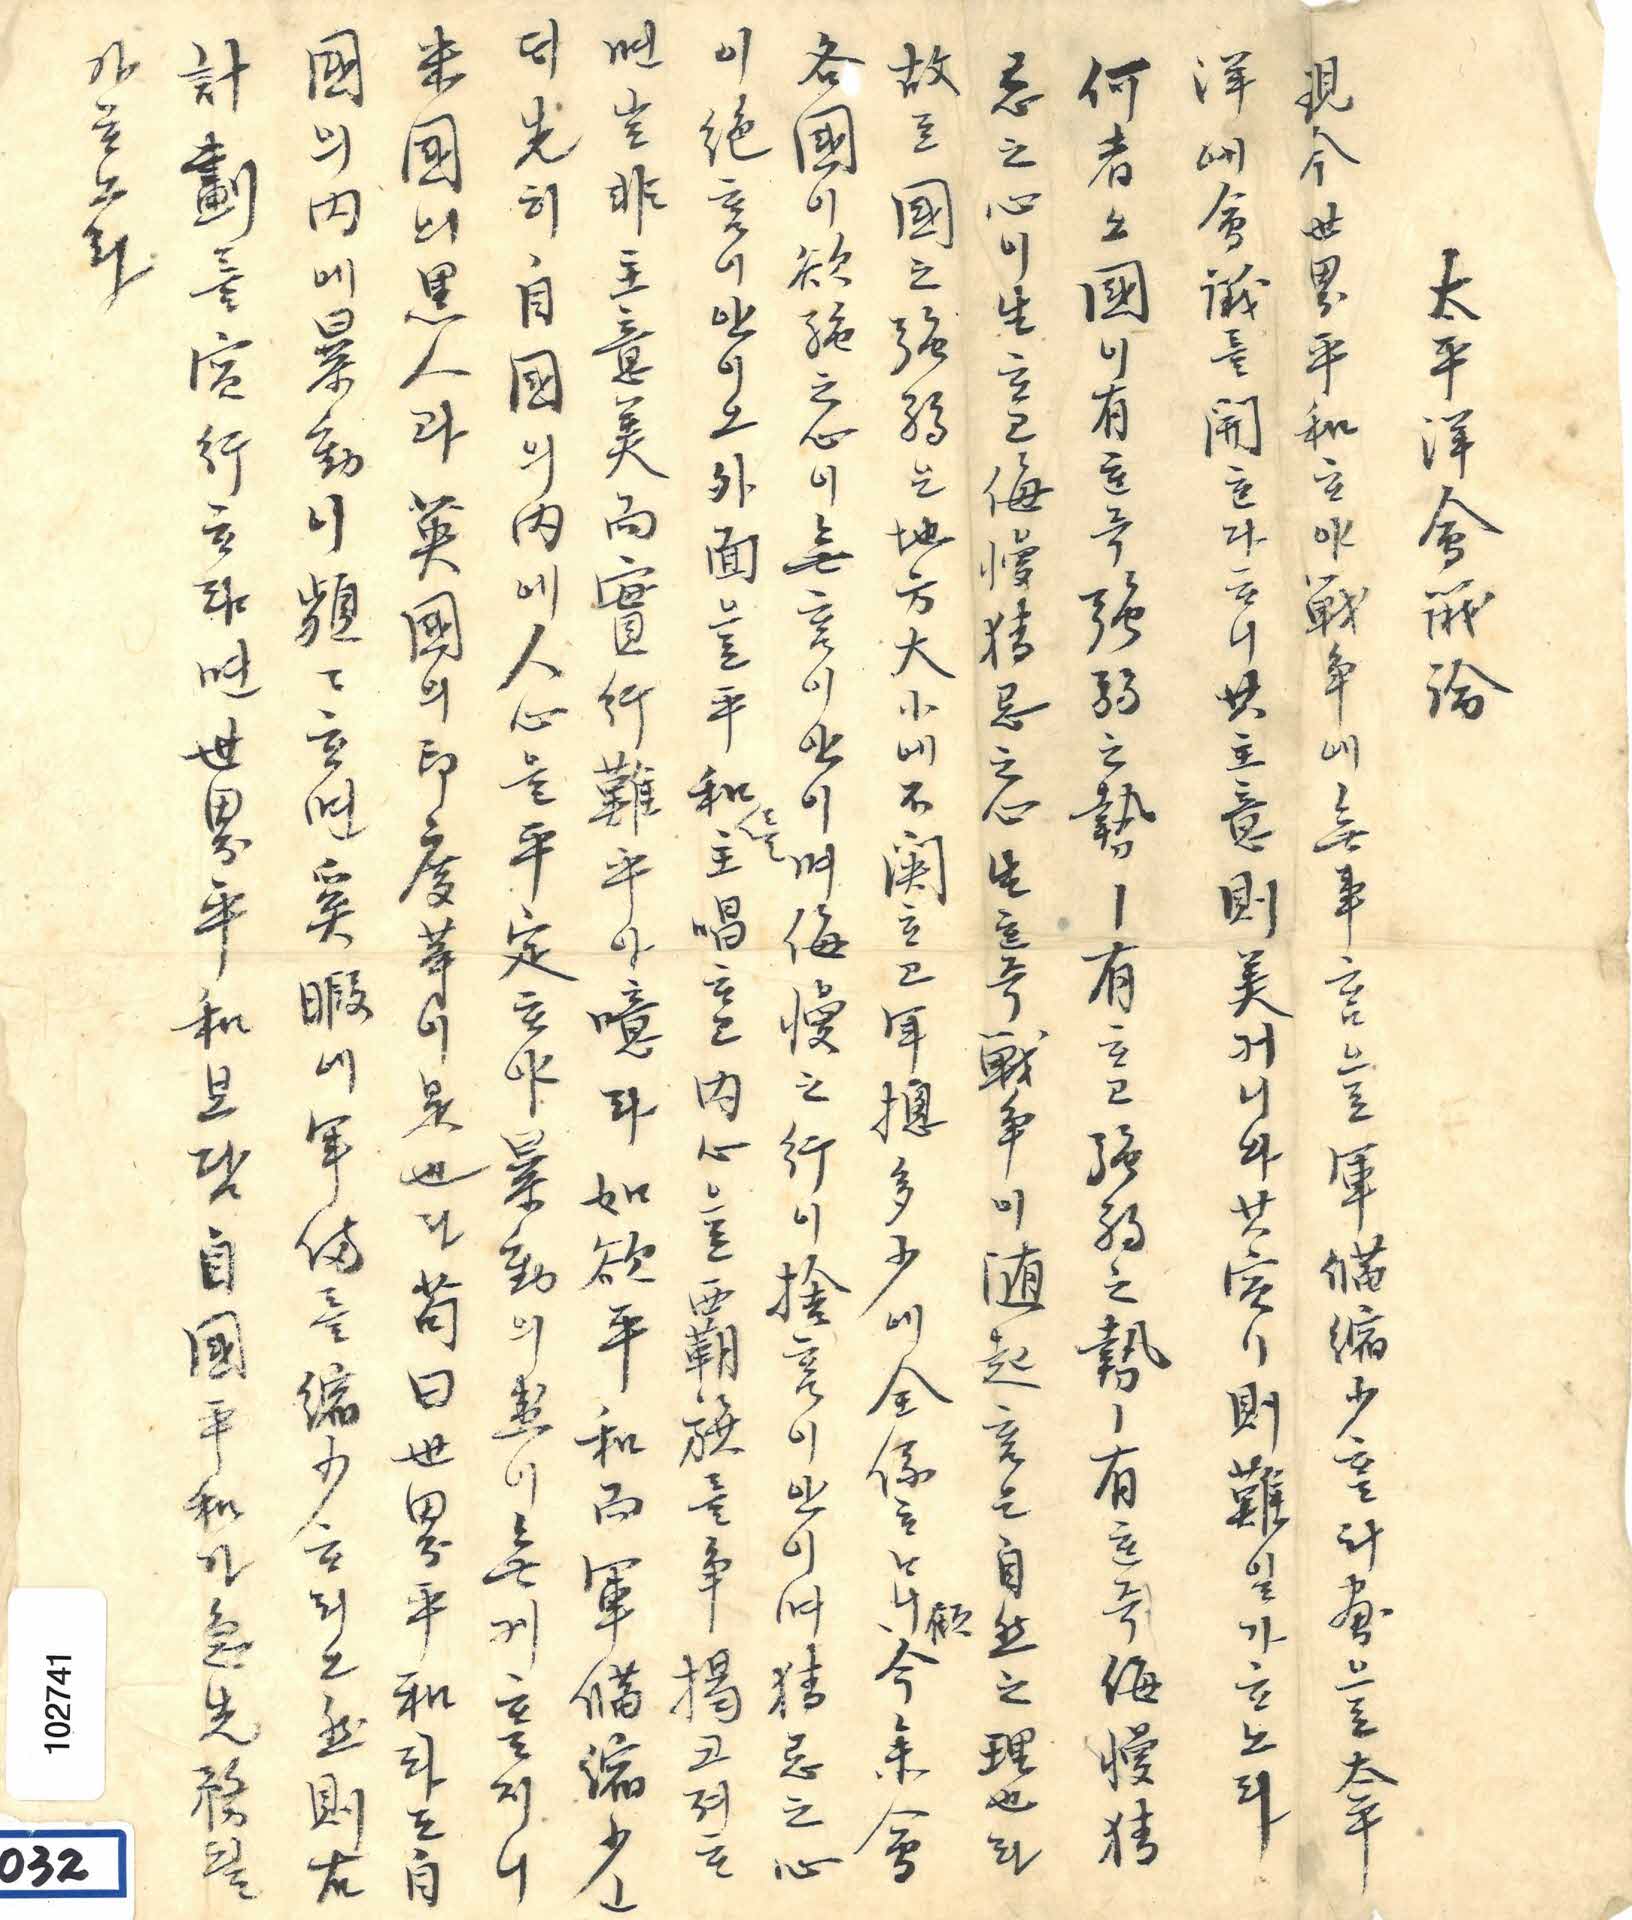 太平洋會議論
現今世界平和하야戰争에無事홈을軍備縮少홀計畫으로太平
洋에會議를開한다하니其主意則美거니와其實行則難일가하노라
何者오國이有한즉強弱之勢ㅣ有하고強弱之勢ㅣ有한즉侮慢猜
忌之心이生하고侮慢猜忌之心生한즉戰争이随起홈은自然之理也라
故로國之強弱은地方大小에不關하고軍摠多少에全係하나니顧今參會
各國이欲施之心이無홈이안이며侮慢之行이捨홈이안이며猜忌之心
이絶홈이안이오外面은平和를主唱하고内心은西覇旗를争揭코져하
면豈非主意美而實行難乎아噫라如欲平和而軍備縮少ㄴ
뎌先히自國의内에人心을平定하야暴動의患이無케홀지니
米國의黒人과英國의印度等이是也라苟曰世界平和라도自
國의内에暴動이頻々하면奚暇에軍備를縮少하리오然則右
計劃를實行하랴면世界平和보담自國平和가急先務될
가하노라
102741
032